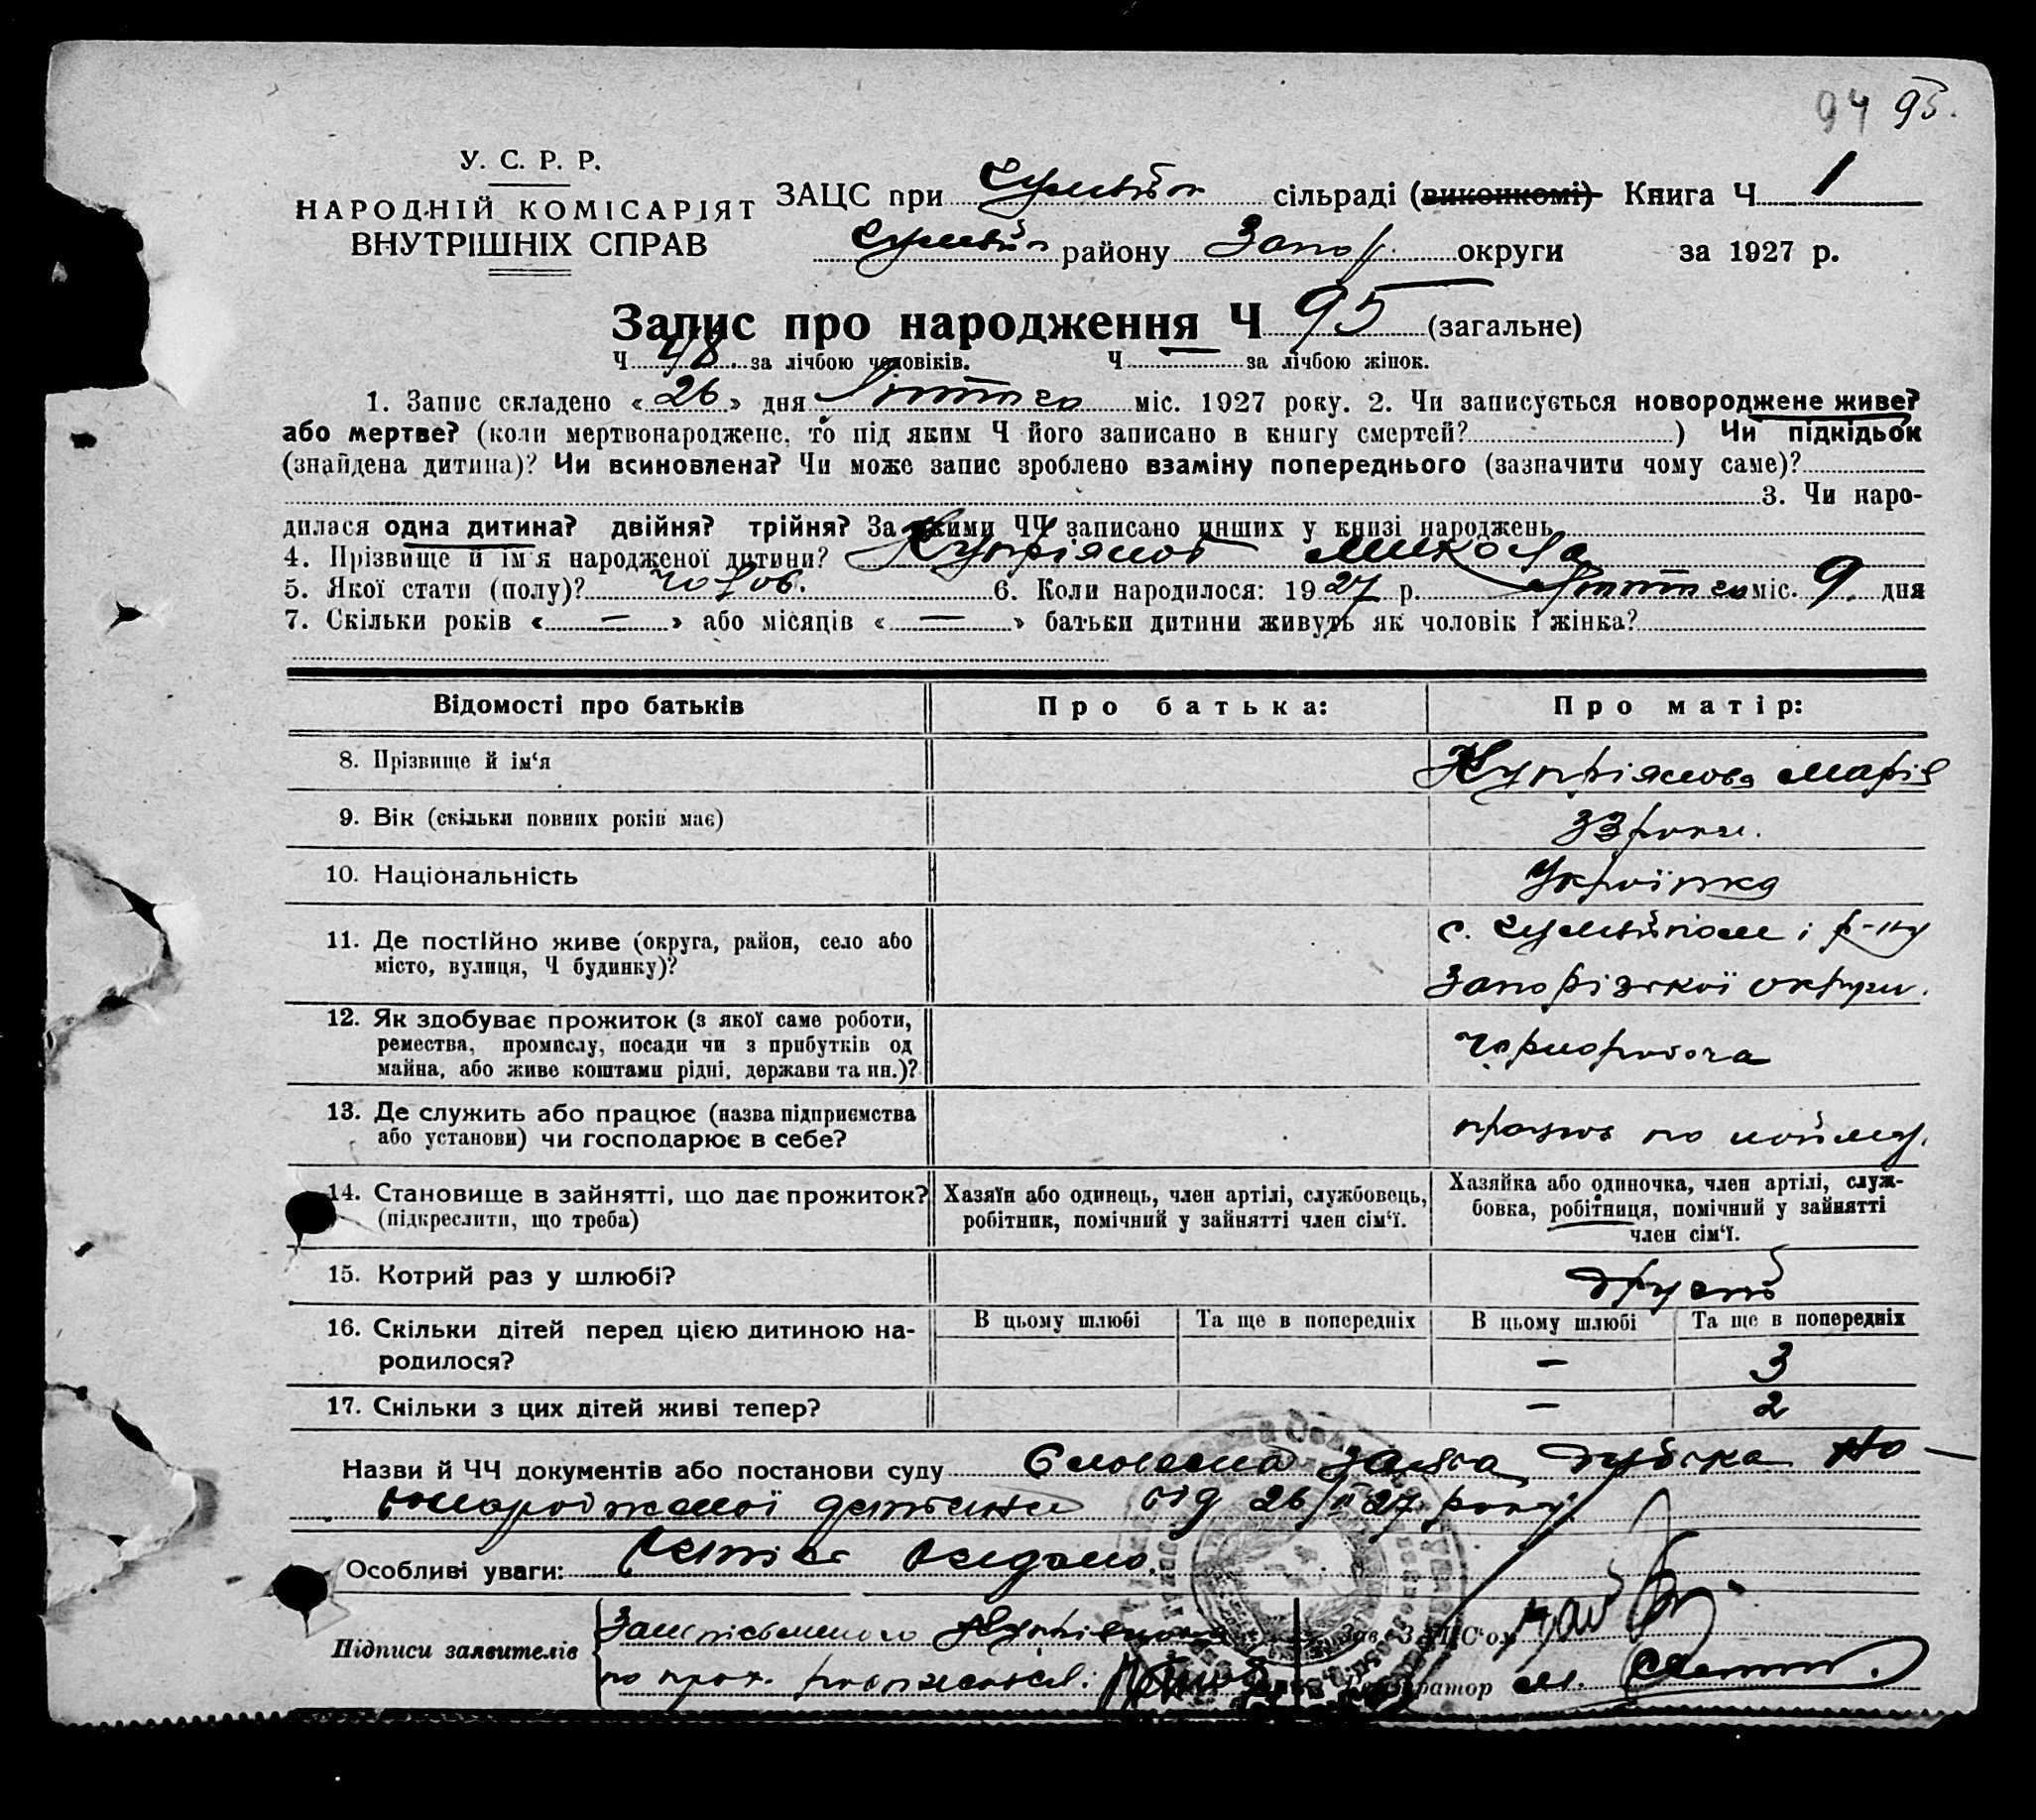 94 95.
У. С. Р. Р.
НАРОДНІЙ КОМІСАРІЯТ
ВНУТРІШНІХ СПРАВ
ЗАЦС при сільраді (виконкомі) Книга Ч 1
району Запор. округи за 1927 р.
Запис про народження Ч 95 (загальне)
Ч 48. за лічбою чоловіків. Ч — за лічбою жінок.
1. Запис складено « 26 » дня Лютого міс. 1927 року. 2. Чи записується новороджене живе?
або мертве? (коли мертвонароджене, то під яким Ч його записано в книгу смертей? ) Чи підкідьок
(знайдена дитина)? Чи всиновлена? Чи може запис зроблено взаміну попереднього (зазначити чому саме)?
3. Чи наро-
дилася одна дитина? двійня? трійня? За якими ЧЧ записано инших у книзі народжень
4. Прізвище й ім'я народженої дитини? Купріянов Микола
5. Якої стати (полу)? чолов. 6. Коли народилося: 1927 р. Лютого міс. 9. дня
7. Скільки років « — » або місяців « — » батьки дитини живуть як чоловік і жінка?
Відомості про батьків Про батька: Про матір:
8. Прізвище й ім'я Купріянова Марія
9. Вік (скільки повних років має) 33 роки.
10. Національність Українка
11. Де постійно живе (округа, район, село або с. і р-ну
місто, вулиця, Ч будинку)? Запорізької округи.
12. Як здобуває прожиток (з якої саме роботи,
ремества, промислу, посади чи з прибутків од чорнороboча
майна, або живе коштами рідні, держави та ин.)?
13. Де служить або працює (назва підприємства
або установи) чи господарює в себе? працює по найму.
14. Становище в зайнятті, що дає прожиток? Хазяїн або одинець, член артілі, службовець, Хазяйка або одиночка, член артілі, служ-
(підкреслити, що треба) робітник, помічний у зайнятті член сім'ї. бовка, робітниця, помічний у зайнятті
член сім'ї.
15. Котрий раз у шлюбі? другий
16. Скільки дітей перед цією дитиною на- В цьому шлюбі Та ще в попередніх В цьому шлюбі Та ще в попередніх
родилося? — 3
17. Скільки з цих дітей живі тепер? — 2
Назви й ЧЧ документів або постанови суду Словесна заява но-
вонародженої дитини від 26/II 27 року.
Особливі уваги: видано.
Підписи заявителів За неписьменного Зав. ЗАЦС'ом
по прох. розписався: Реєстратор